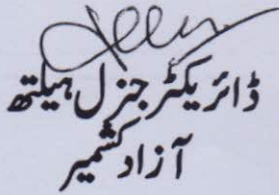 ڈائریکٹر جنرل ہیلتھ
آزاد کشمیر